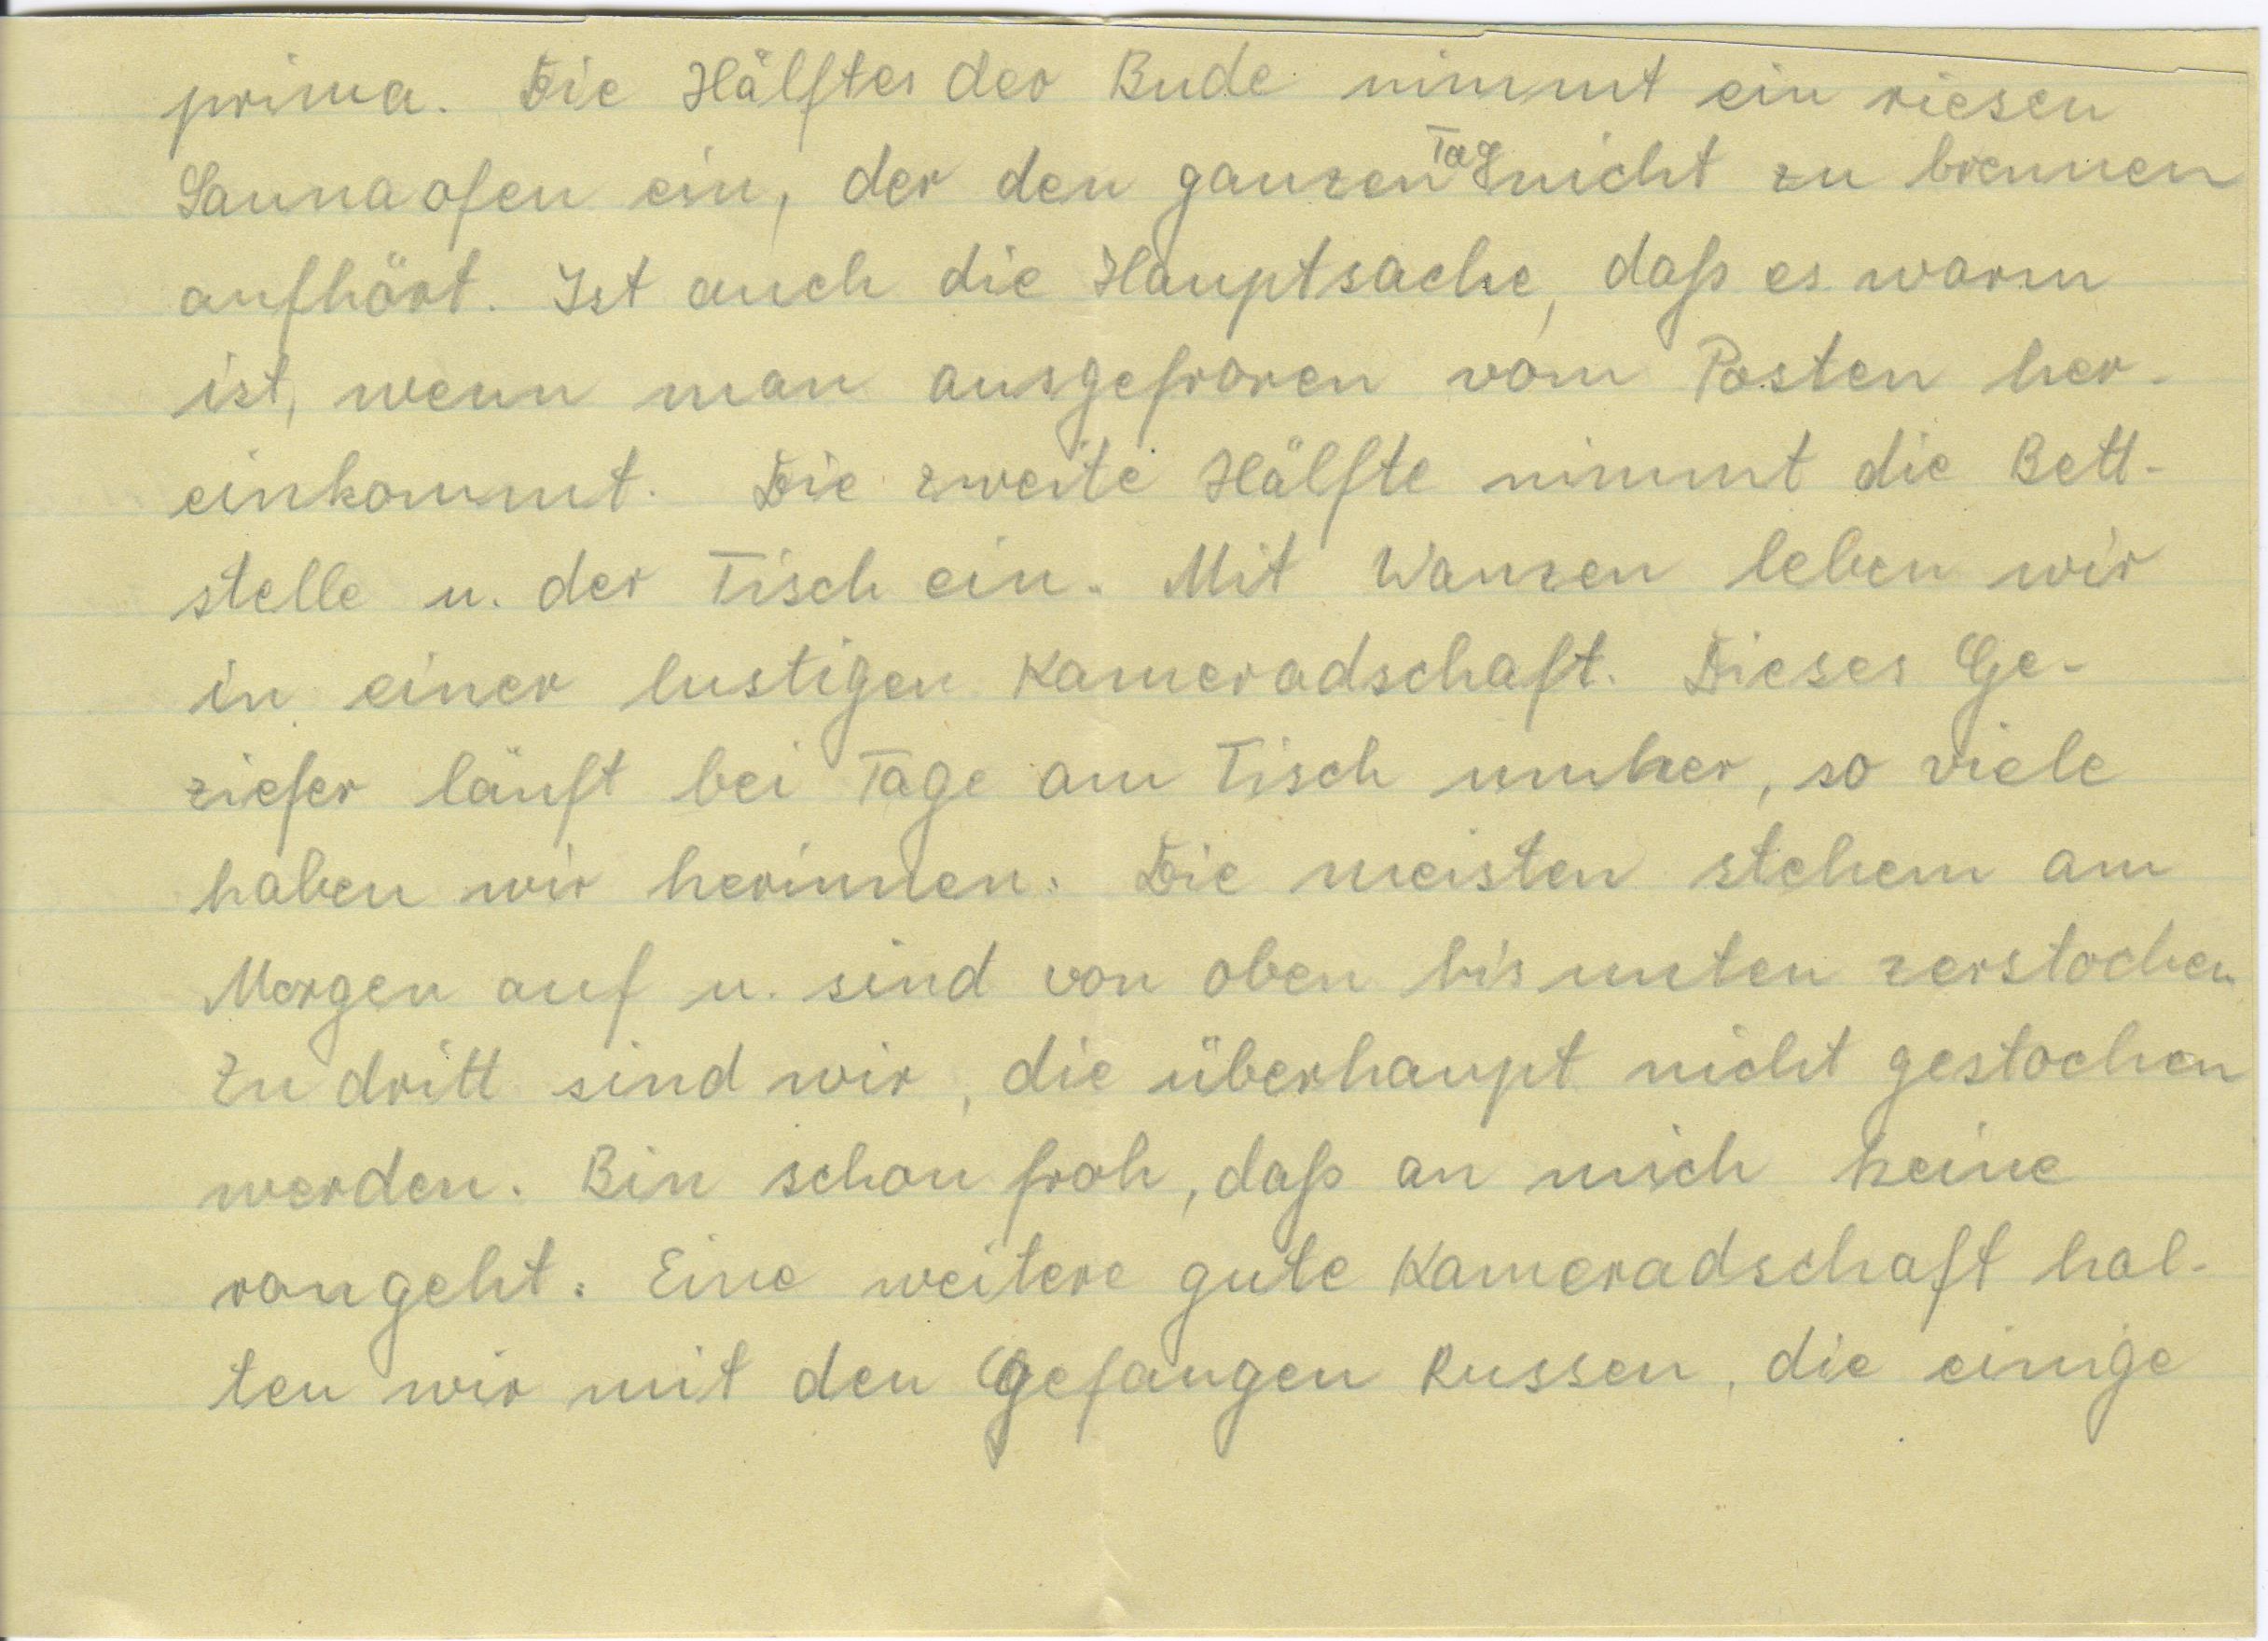 prima. Die Hälftes der Bude nimmt ein riesen
Saunaofen ein, der den ganzen Tag nicht zu brennen
aufhört. Ist auch die Hauptsache, daß es warm
ist, wenn man ausgefroren vom Posten her-
einkommt. Die zweite Hälfte nimmt die Bett-
stelle u. der Tisch ein. Mit Wanzen leben wir
in einer lustigen Kameradschaft. Dieses Ge-
ziefer läuft bei Tage am Tisch umher, so viele
haben wir herinnen. Die meisten stehem am
Morgen auf u. sind von oben bis unten zerstochen
Zu dritt sind wir, die überhaupt nicht gestochen
werden. Bin schon froh, daß an mich keine
rangeht. Eine weitere gute Kameradschaft hal-
ten wir mit den gefangen Russen, die einige